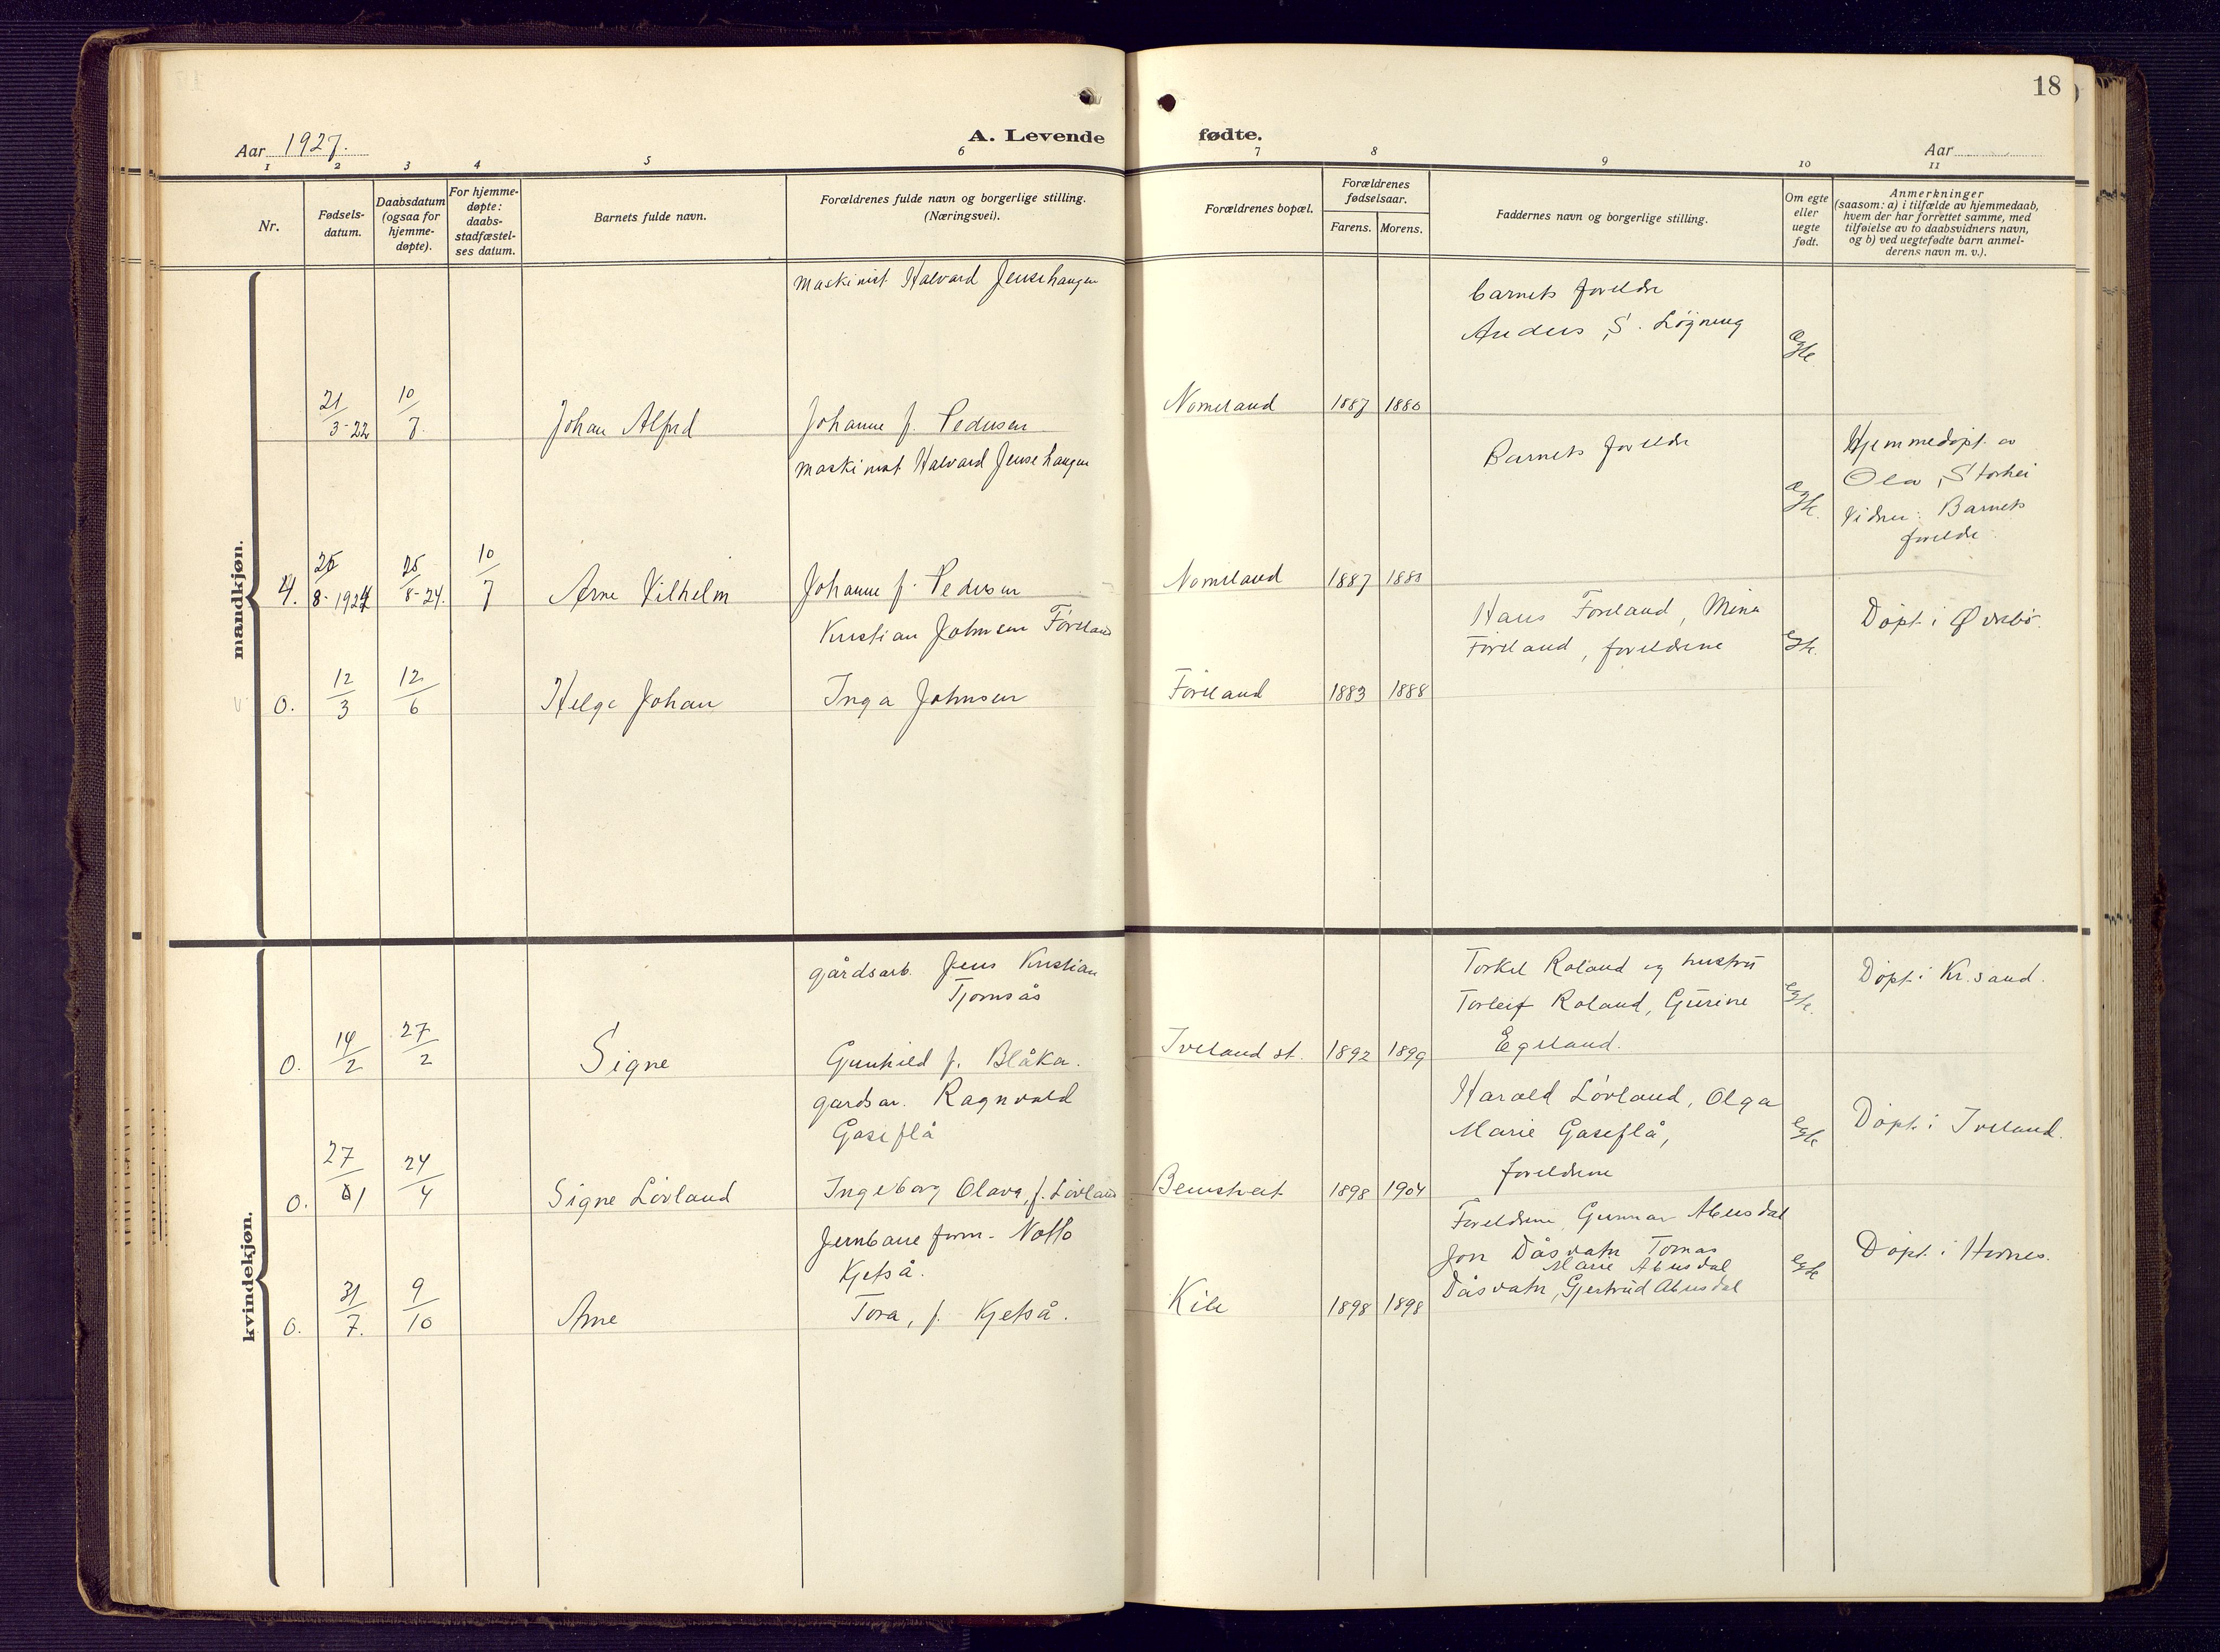 18
A. Levende fødte.
Aar 1927.
Aar
1 2 3 4 5 6 7 8 9 10 11
Nr.
Fødsels-
datum.
Daabsdatum
(ogsaa for
hjemme-
døpte).
For hjemme-
døpte:
daabs-
stadfæstel-
ses datum.
Barnets fulde navn.
Forældrenes fulde navn og borgerlige stilling.
(Næringsvei).
Forældrenes bopæl.
Forældrenes
fødselsaar.
Farens. Morens.
Faddernes navn og borgerlige stilling.
Om egte
eller
uegte
født.
Anmerkninger
(saasom: a) i tilfælde av hjemmedaab,
hvem der har forrettet samme, med
tilføielse av to daabsvidners navn,
og b) ved uegtefødte barn anmel-
derens navn m. v.).
mandkjøn.
maskinist Halvard Jensehaugen
barnets foreldre
Anders S. Løgning
ægte
21/3-22 10/7. Johan Alfred Johanne f. Pedersen Nomeland 1887 1880
maskinist Halvard Jensehaugen
Barnets foreldre
ægte.
Hjemmedøpt av
Olav Storhei
Vidner: Barnets
foreldre
4. 25/8-1924 25/8-24. 10/7 Arne Vilhelm Johanne f. Pedersen Nomeland 1887 1880
Kristian Johnsen Føreland
Hans Føreland, Mina
Føreland, foreldrene
egte.
Døpt i Øvrebø.
0. 12/3 12/6 Helge Johan Inga Johnsen Føreland 1883 1888
kvindekjøn.
gårdsarb. Jens Kristian
Tjomsås
Torkel Roland og hustru
Torleif Roland, Gurine
Egeland.
egte.
Døpt i Kr.sand.
0. 14/2 27/2 Signe Gunhild f. Blåka. Iveland st. 1892 1899
gardsar. Ragnvald
Gaseflå
Harald Løvland, Olga
Marie Gaseflå,
foreldrene
egte
Døpt i Iveland.
0. 27/1 24/4 Signe Løvland Ingeborg Olava, f. Løvland Beinestveit 1898 1904
Jernbane form. Notto
Kjetså.
Foreldrene, Gunnar Abusdal
Jon Dåsvatn Tomas
Marie Abusdal
Dåsvatn, Gjertrud Abusdal
egte
Døpt i Hornes.
0. 31/7. 9/10 Arne Tora, f. Kjetså. Kile 1898 1898